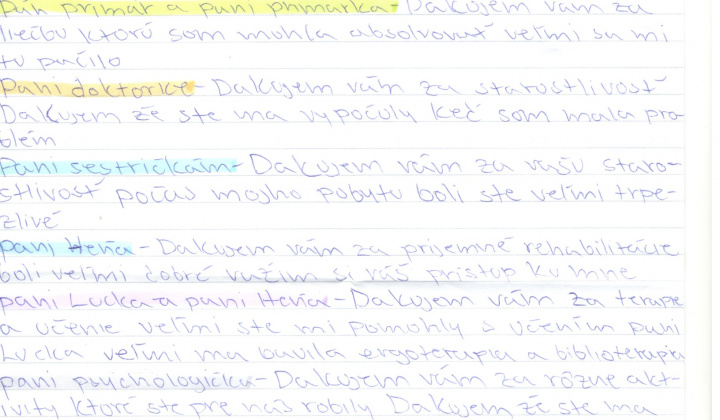 pán primár a pani primárka- Dakujem vám za
liečbu ktorú som mohla absolvovať veľmi sa mi
tu páčilo
Pani doktorke- Dakujem vám za starostlivosť
Dakujem že ste ma vypočuly keč som mala pro-
blém
Pani sestričkám- Dakujem vám za vašu staro-
stlivosť počas mojho pobytu boli ste veľmi trpe-
zlivé
pani Heňa- Dakujem vám za prijemné rehabilitácie
boli veľmi dobré važim si váš pristup ku mne
pani Lucka a pani Heňa- Dakujem vám za terapie
a učenie veľmi ste mi pomohly s učením pani
Lucka veľmi ma bavila ergoterapia a biblioterapia
pani psychologička- Dakujem vám za rôzne akt-
ivity ktoré ste pre nás robily Dakujem že ste ma